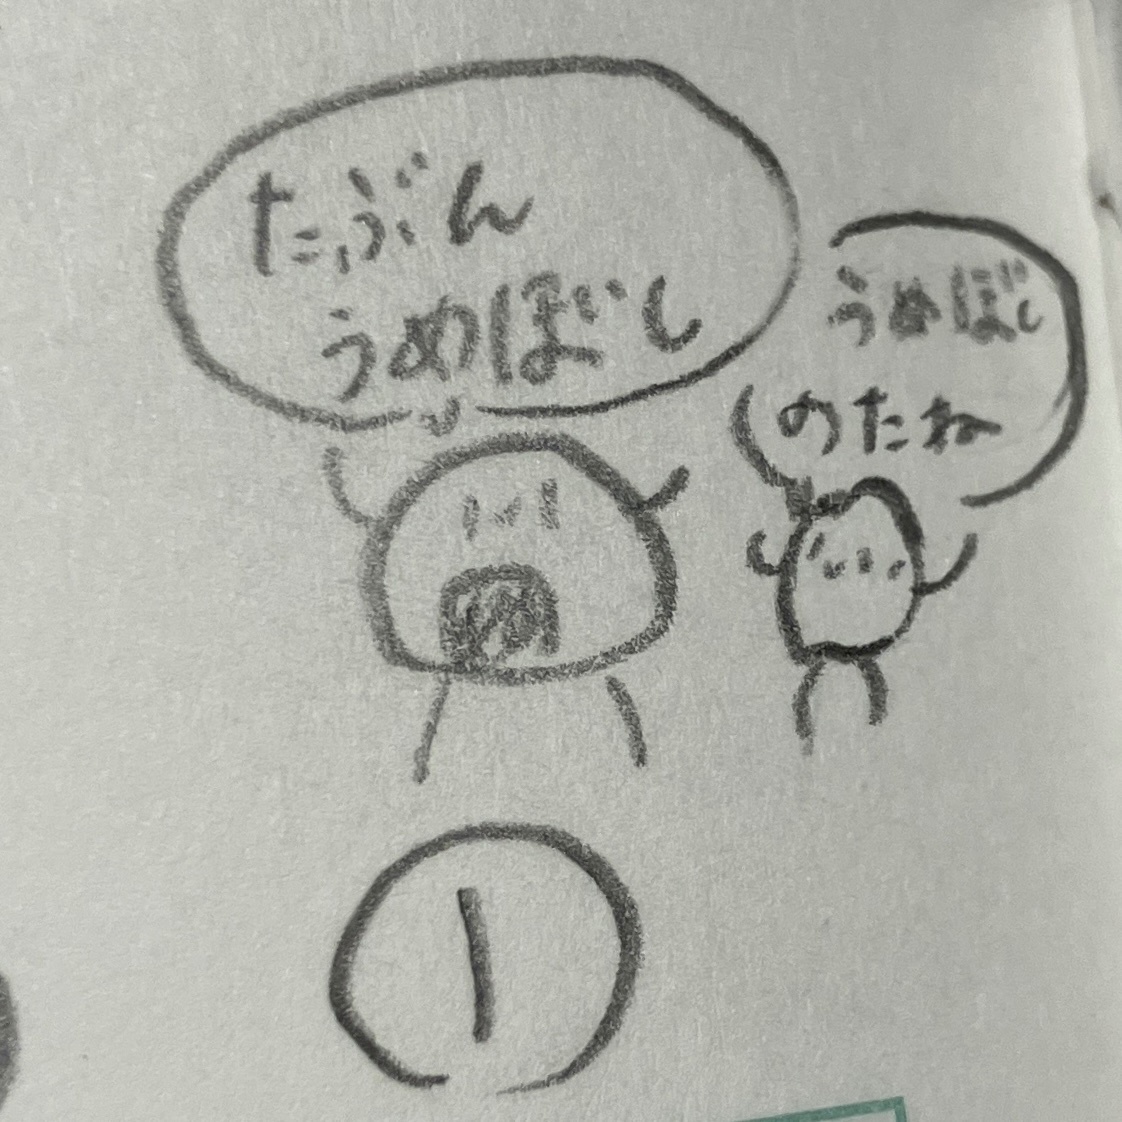 たぶん
うめぼし
うめぼし
のたね
1